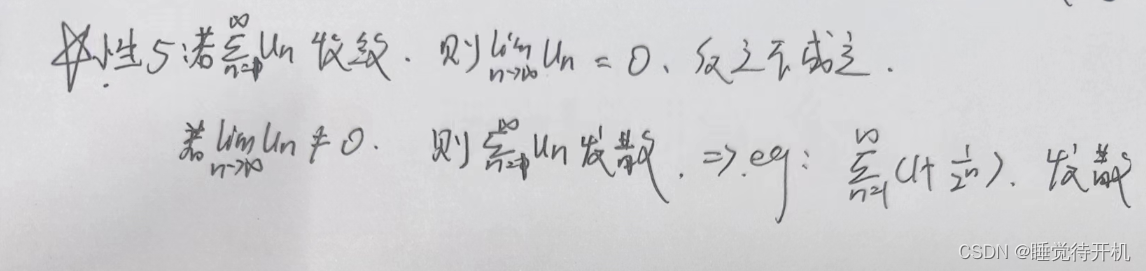 ☆性5:若∑_{n=1}^{∞}Un 收敛. 则 lim_{n→∞} Un = 0、反之不成立.
若 lim_{n→∞} Un ≠ 0. 则 ∑_{n=1}^{∞} Un 发散. ⇒. eg: ∑_{n=1}^{∞}(1+1/2^n). 发散
CSDN @睡觉待开机